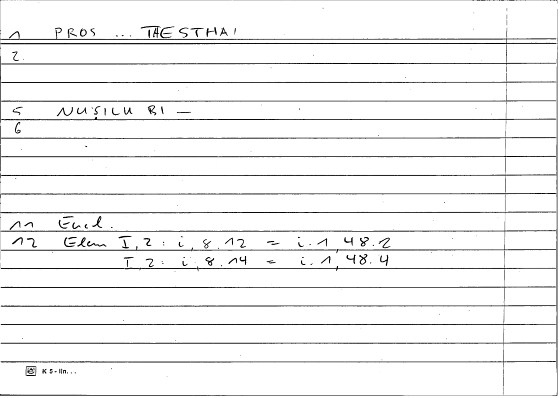 1 PROS ... THESTHAI
2.
5 NUSILU BI —
6
11 Eucl.
12 Elem I, 2: i, 8.12 = i. 1, 48.2
I, 2: i, 8.14 = i. 1, 48.4
K 5 - lin...